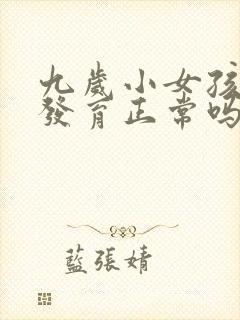 九歲小女孩
發育正常嗎
藍張婧